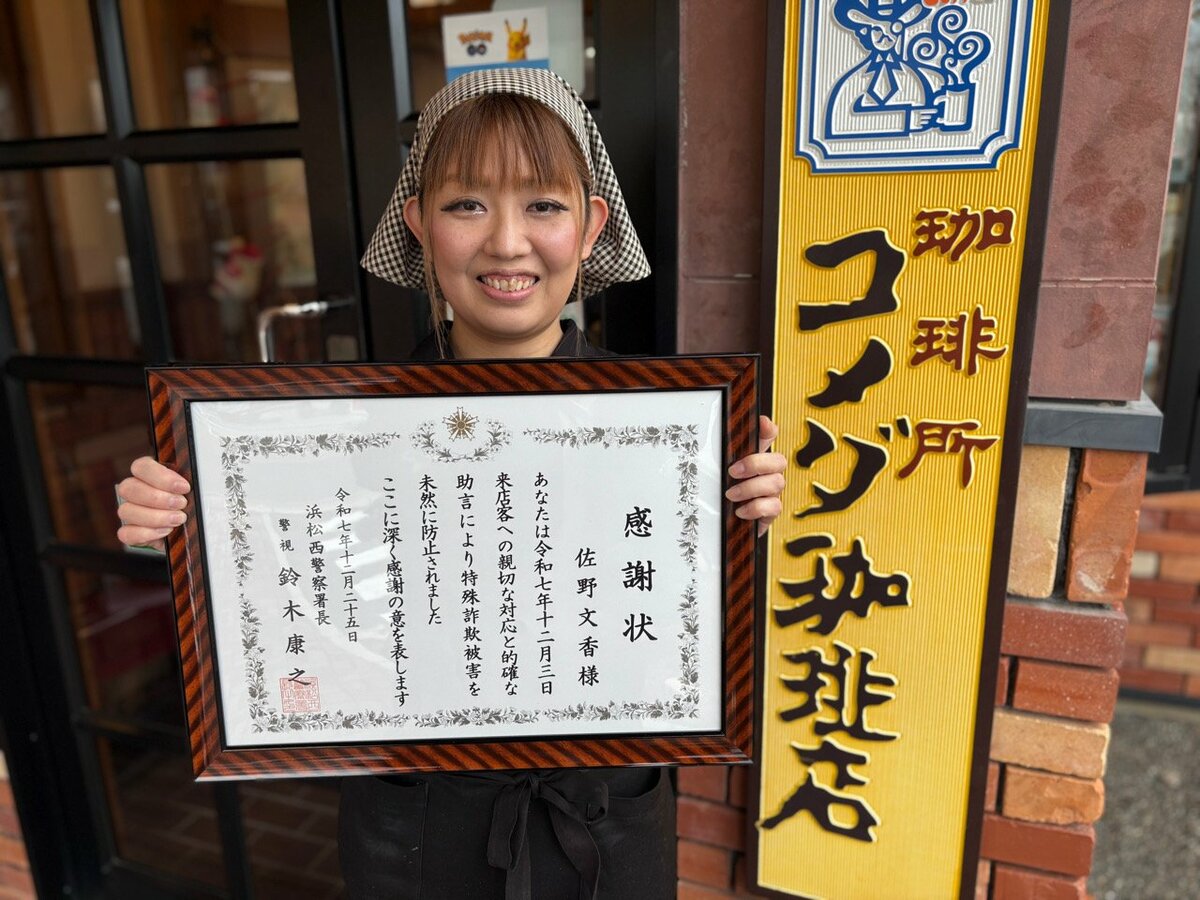 Pokémon
GO
珈琲所
コメダ珈琲店
感謝状
佐野文香様
あなたは令和七年十二月三日
来店客への親切な対応と的確な
助言により特殊詐欺被害を
未然に防止されました
ここに深く感謝の意を表します
令和七年十二月二十五日
浜松西警察署長
警視 鈴木康之